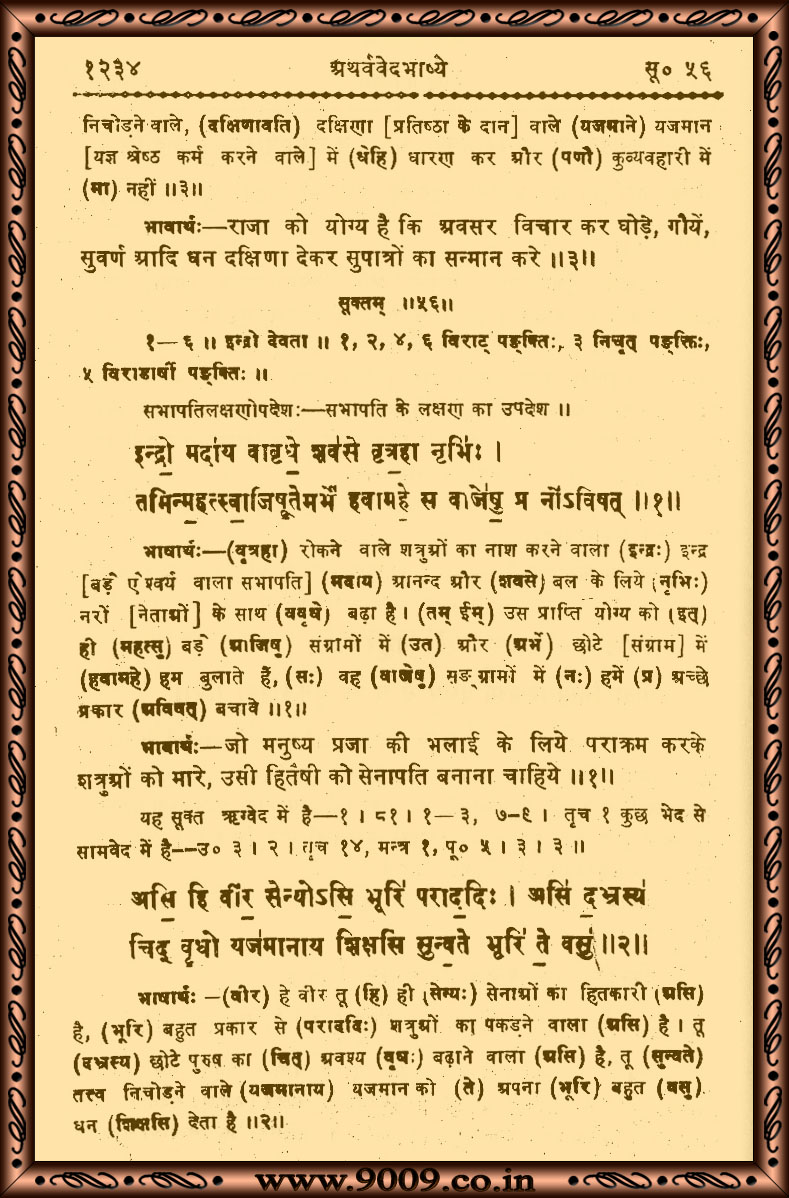 १२३४ अथर्ववेदभाष्ये सू० ५६
निचोड़ने वाले, (दक्षिणावति) दक्षिणा [प्रतिष्ठा के दान] वाले (यजमाने) यजमान
[यज्ञ श्रेष्ठ कर्म करने वाले] में (धेहि) धारण कर और (पणौ) कुव्यवहारी में
(मा) नहीं ॥३॥
भावार्थः—राजा को योग्य है कि अवसर विचार कर घोड़े, गौयें,
सुवर्ण आदि धन दक्षिणा देकर सुपात्रों का सन्मान करे ॥३॥
सूक्तम् ॥५६॥
१—६ ॥ इन्द्रो देवता ॥ १, २, ४, ६ विराट् पङ्क्तिः, ३ निचृत् पङ्क्तिः,
५ विराडार्षी पङ्क्तिः ॥
सभापतिलक्षणोपदेशः—सभापति के लक्षण का उपदेश ॥
इन्द्रो॒ मदा॑य वावृधे॒ शव॑से वृत्र॒हा नृभिः॑ ।
तमिन्म॒हत्स्वा॒जिषू॒तेमर्भे॑ हवामहे॒ स वाजे॑षु॒ प्र नो॑ऽविषत् ॥१॥
भाषार्थः—(वृत्रहा) रोकने वाले शत्रुओं का नाश करने वाला (इन्द्रः) इन्द्र
[बड़े ऐश्वर्य वाला सभापति] (मदाय) आनन्द और (शवसे) बल के लिये (नृभिः)
नरों [नेताओं] के साथ (ववृधे) बढ़ा है। (तम् ईम्) उस प्राप्ति योग्य को (इत्)
ही (महत्सु) बड़े (आजिषु) संग्रामों में (उत) और (अर्भे) छोटे [संग्राम] में
(हवामहे) हम बुलाते हैं, (सः) वह (वाजेषु) सङ्ग्रामों में (नः) हमें (प्र) अच्छे
प्रकार (अविषत्) बचावे ॥१॥
भावार्थः—जो मनुष्य प्रजा की भलाई के लिये पराक्रम करके
शत्रुओं को मारे, उसी हितैषी को सेनापति बनाना चाहिये ॥१॥
यह सूक्त ऋग्वेद में है—१ । ८१ । १—३, ७-९ । तृच १ कुछ भेद से
सामवेद में है--उ० ३ । २ । तृच १४, मन्त्र १, पू० ५ । ३ । ३ ॥
असि॒ हि वी॑र॒ सेन्योऽसि॒ भूरि॑ पराद॒दिः । असि॑ द॒भ्रस्य॑
चिद् वृ॒धो यज॑मानाय शिक्षसि सुन्व॒ते भूरि॑ ते॒ वसु॑ ॥२॥
भाषार्थः —(वीर) हे वीर तू (हि) ही (सेन्यः) सेनाओं का हितकारी (असि)
है, (भूरि) बहुत प्रकार से (पराददिः) शत्रुओं का पकड़ने वाला (असि) है । तू
(दभ्रस्य) छोटे पुरुष का (चित्) अवश्य (वृधः) बढ़ाने वाला (असि) है, तू (सुन्वते)
तत्त्व निचोड़ने वाले (यजमानाय) यजमान को (ते) अपना (भूरि) बहुत (वसु)
धन (शिक्षसि) देता है ॥२॥
www.9009.co.in